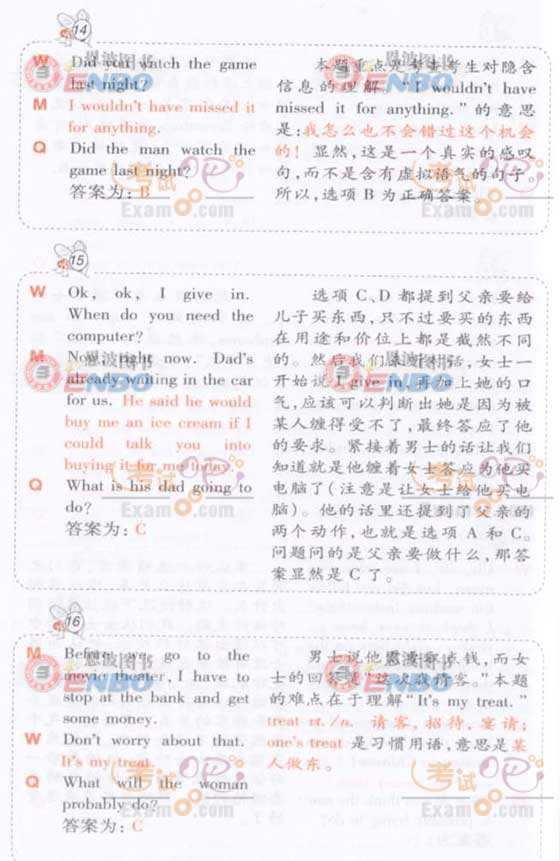 14
W Did you watch the game
last night?
M I wouldn't have missed it
for anything.
Q Did the man watch the
game last night?
答案为：B
本题重点是考查考生对隐含
信息的理解。“I wouldn't have
missed it for anything.”的意思
是：我怎么也不会错过这个机会
的！显然，这是一个真实的感叹
句，而不是含有虚拟语气的句子。
所以，选项 B 为正确答案。
15
W Ok, ok, I give in.
When do you need the
computer?
M Now, right now. Dad's
already waiting in the car
for us. He said he would
buy me an ice cream if I
could talk you into
buying it for me today.
Q What is his dad going to
do?
答案为：C
选项 C、D 都提到父亲要给
儿子买东西，只不过要买的东西
在用途和价位上都是截然不同
的。然后我们听对话，女士一
开始说 I give in，再加上她的口
气，应该可以判断出她是因为被
某人缠得受不了，最终答应了他
的要求。紧接着男士的话让我们
知道就是他缠着女士答应为他买
电脑了（注意是让女士给他买电
脑）。他的话里还提到了父亲的
两个动作，也就是选项 A 和 C。
问题问的是父亲要做什么，那答
案显然是 C 了。
16
M Before we go to the
movie theater, I have to
stop at the bank and get
some money.
W Don't worry about that.
It's my treat.
Q What will the woman
probably do?
答案为：C
男士说他要取点钱，而女
士的回答是“这次我请客。”本题
的难点在于理解“It's my treat.”
treat vt./n. 请客，招待，宴请；
one's treat 是习惯用语，意思是某
人做东。
恩波图书
ENBO
考试
Exam8.com